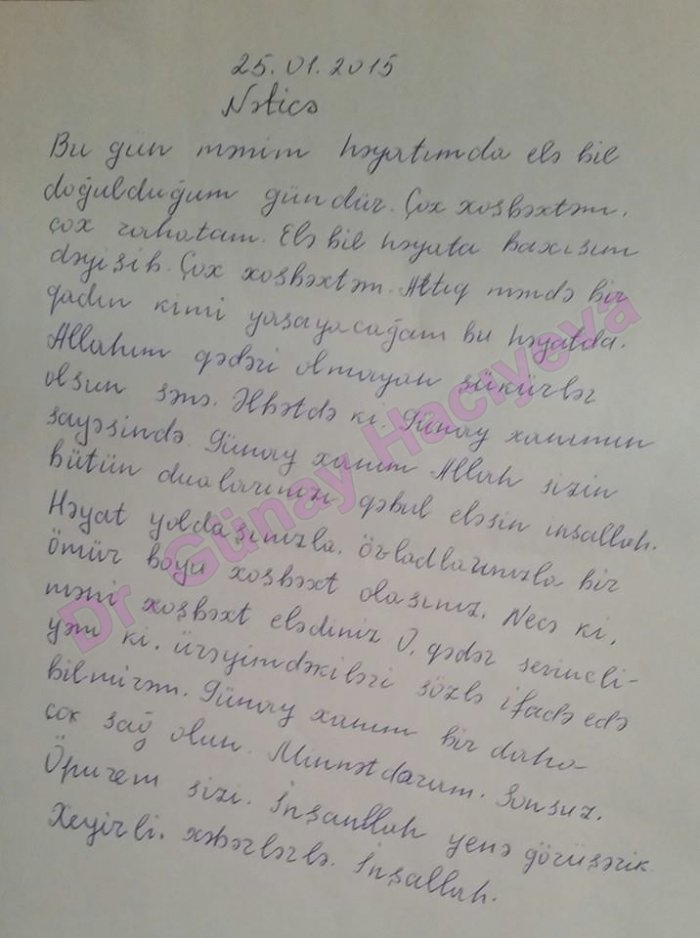 25.01.2015
Nəticə
Bu gün mənim həyatımda elə bil
doğulduğum gündür. Çox xoşbəxtəm,
çox rahatam. Elə bil həyata baxışım
dəyişib. Çox xoşbəxtəm. Attıq məndə bir
qadın kimi yaşayacağam bu həyatda.
Allahım qədəri olmayan şükürlər
olsun sənə. Əlbətdə ki. Günay xanımın
sayəsində. Günay xanım Allah sizin
bütün dualarınızı qəbul eləsin inşallah.
Həyat yoldaşınızla, övladlarınızla bir
ömür boyu xoşbəxt olasınız. Necə ki,
məni xoşbəxt elədiniz O, qədər sevincli-
yəm ki, ürəyimdəkiləri sözlə ifadə edə
bilmirəm. Günay xanım bir daha
çox sağ olun. Minnətdaram. Sonsuz.
Öpürem sizi. İnşanllah yenə görüşərik
Xeyirli. xəbərlərlə. İnşallah.
Dr. Günay Hacıyeva